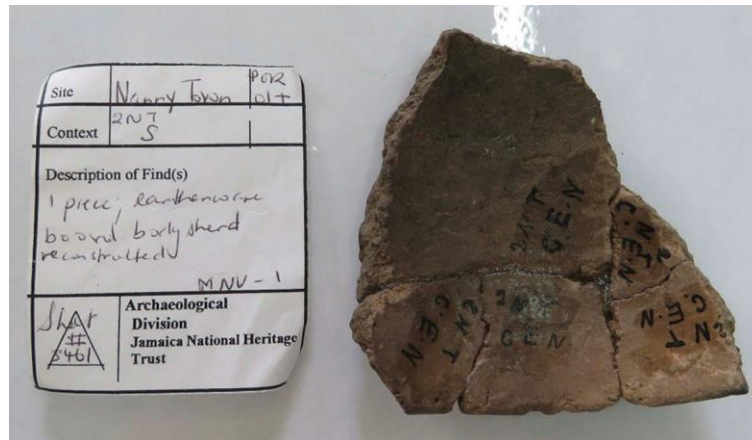 Site Nanny Town POR
01T
Context 2NT
S
Description of Find(s)
1 piece, earthenware
body sherd
reconstructed
MNV - 1
#
5461
Archaeological
Division
Jamaica National Heritage
Trust
2 N.T
C.E.N
2 NT
C.E.N
2 NT
C.E.N
C.E.N